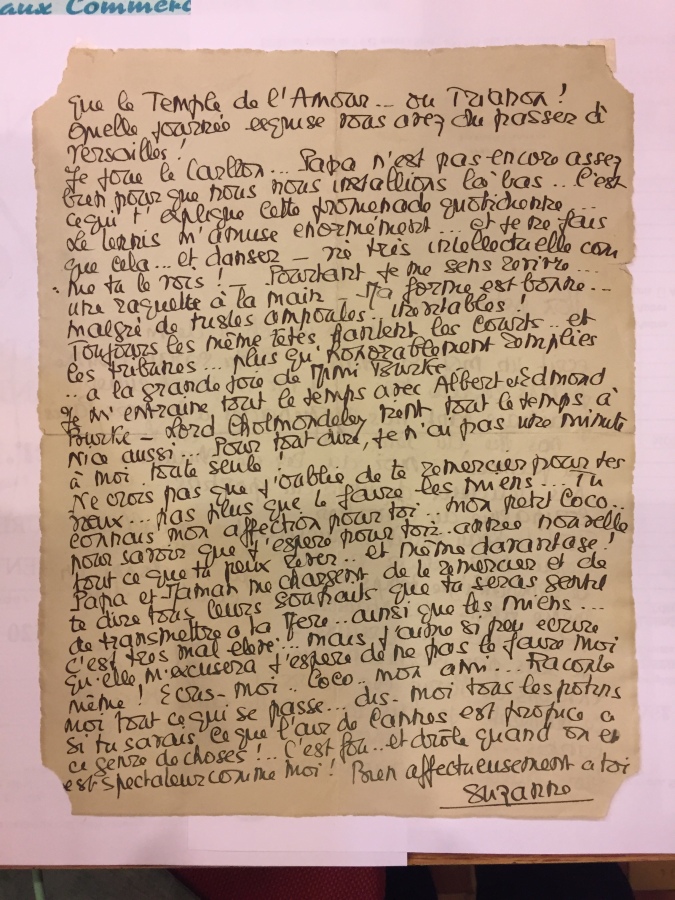 aux Commerc
que le Temple de l'Amour... ou Trianon !
Quelle journée exquise vous avez du passer à
Versailles !
Je joue le Carlton... Papa n'est pas encore assez
bien pour que nous nous installions là bas... C'est
ce qui t'explique cette promenade quotidienne...
Le tennis m'amuse enormément... et je ne fais
que cela... et danser - ni très intellectuelle com
me tu le vois ! - Pourtant je me sens revivre...
une raquette à la main - Ma forme est bonne...
malgré de tristes ampoules.. inevitables !
Toujours les même têtes, hantent les courts.. et
les tribunes... plus qu'honorablement remplies
.. a la grande joie de Mimi Burke
Je m'entraine tout le temps avec Albert et Edmond
Burke - Lord Cholmondeley vient tout le temps à
Nice aussi... Pour tout dire, je n'ai pas une minute
à moi toute seule !
Ne crois pas que j'oublie de te remercier pour tes
vœux... pas plus que te faire les miens... Tu
connais mon affection pour toi.. mon petit Coco..
pour savoir que j'espère pour toi.. année nouvelle
tout ce que tu peux rêver... et même davantage !
Papa et Maman me chargent de te remercier et de
te dire tous leurs souhaits que tu seras gentil
de transmettre a ta Mere.. ainsi que les miens...
C'est très mal elevé... mais j'aime si peu ecrire
qu'elle m'excusera j'espère de ne pas le faire moi
même ! Ecris-moi.. Coco.. mon ami... Raconte
moi tout ce qui se passe... dis-moi tous les potins
Si tu savais ce que l'air de Cannes est propice a
ce genre de choses !.. C'est fou.. et drôle quand on en
est spectateur comme moi ! Bien affectueusement a toi
Suzanne